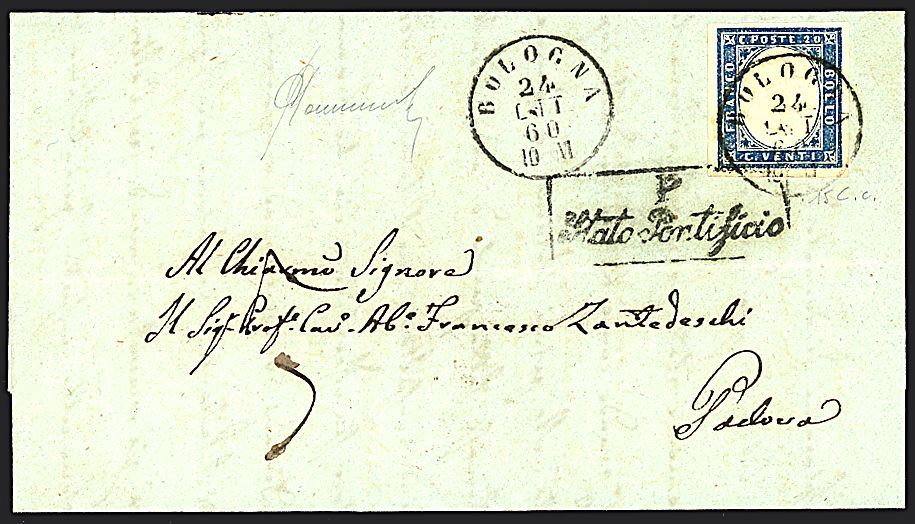 BOLOGNA
24
OTT
60
10 M
C. POSTE. 20
FRANCO
BOLLO
C. VENTI
BOLOGNA
24
P
Stato Pontificio
15 c. a.
Al Chiarmo Signore
Il Sigr. Profe. Cav. Abe. Francesco Zantedeschi
Padova